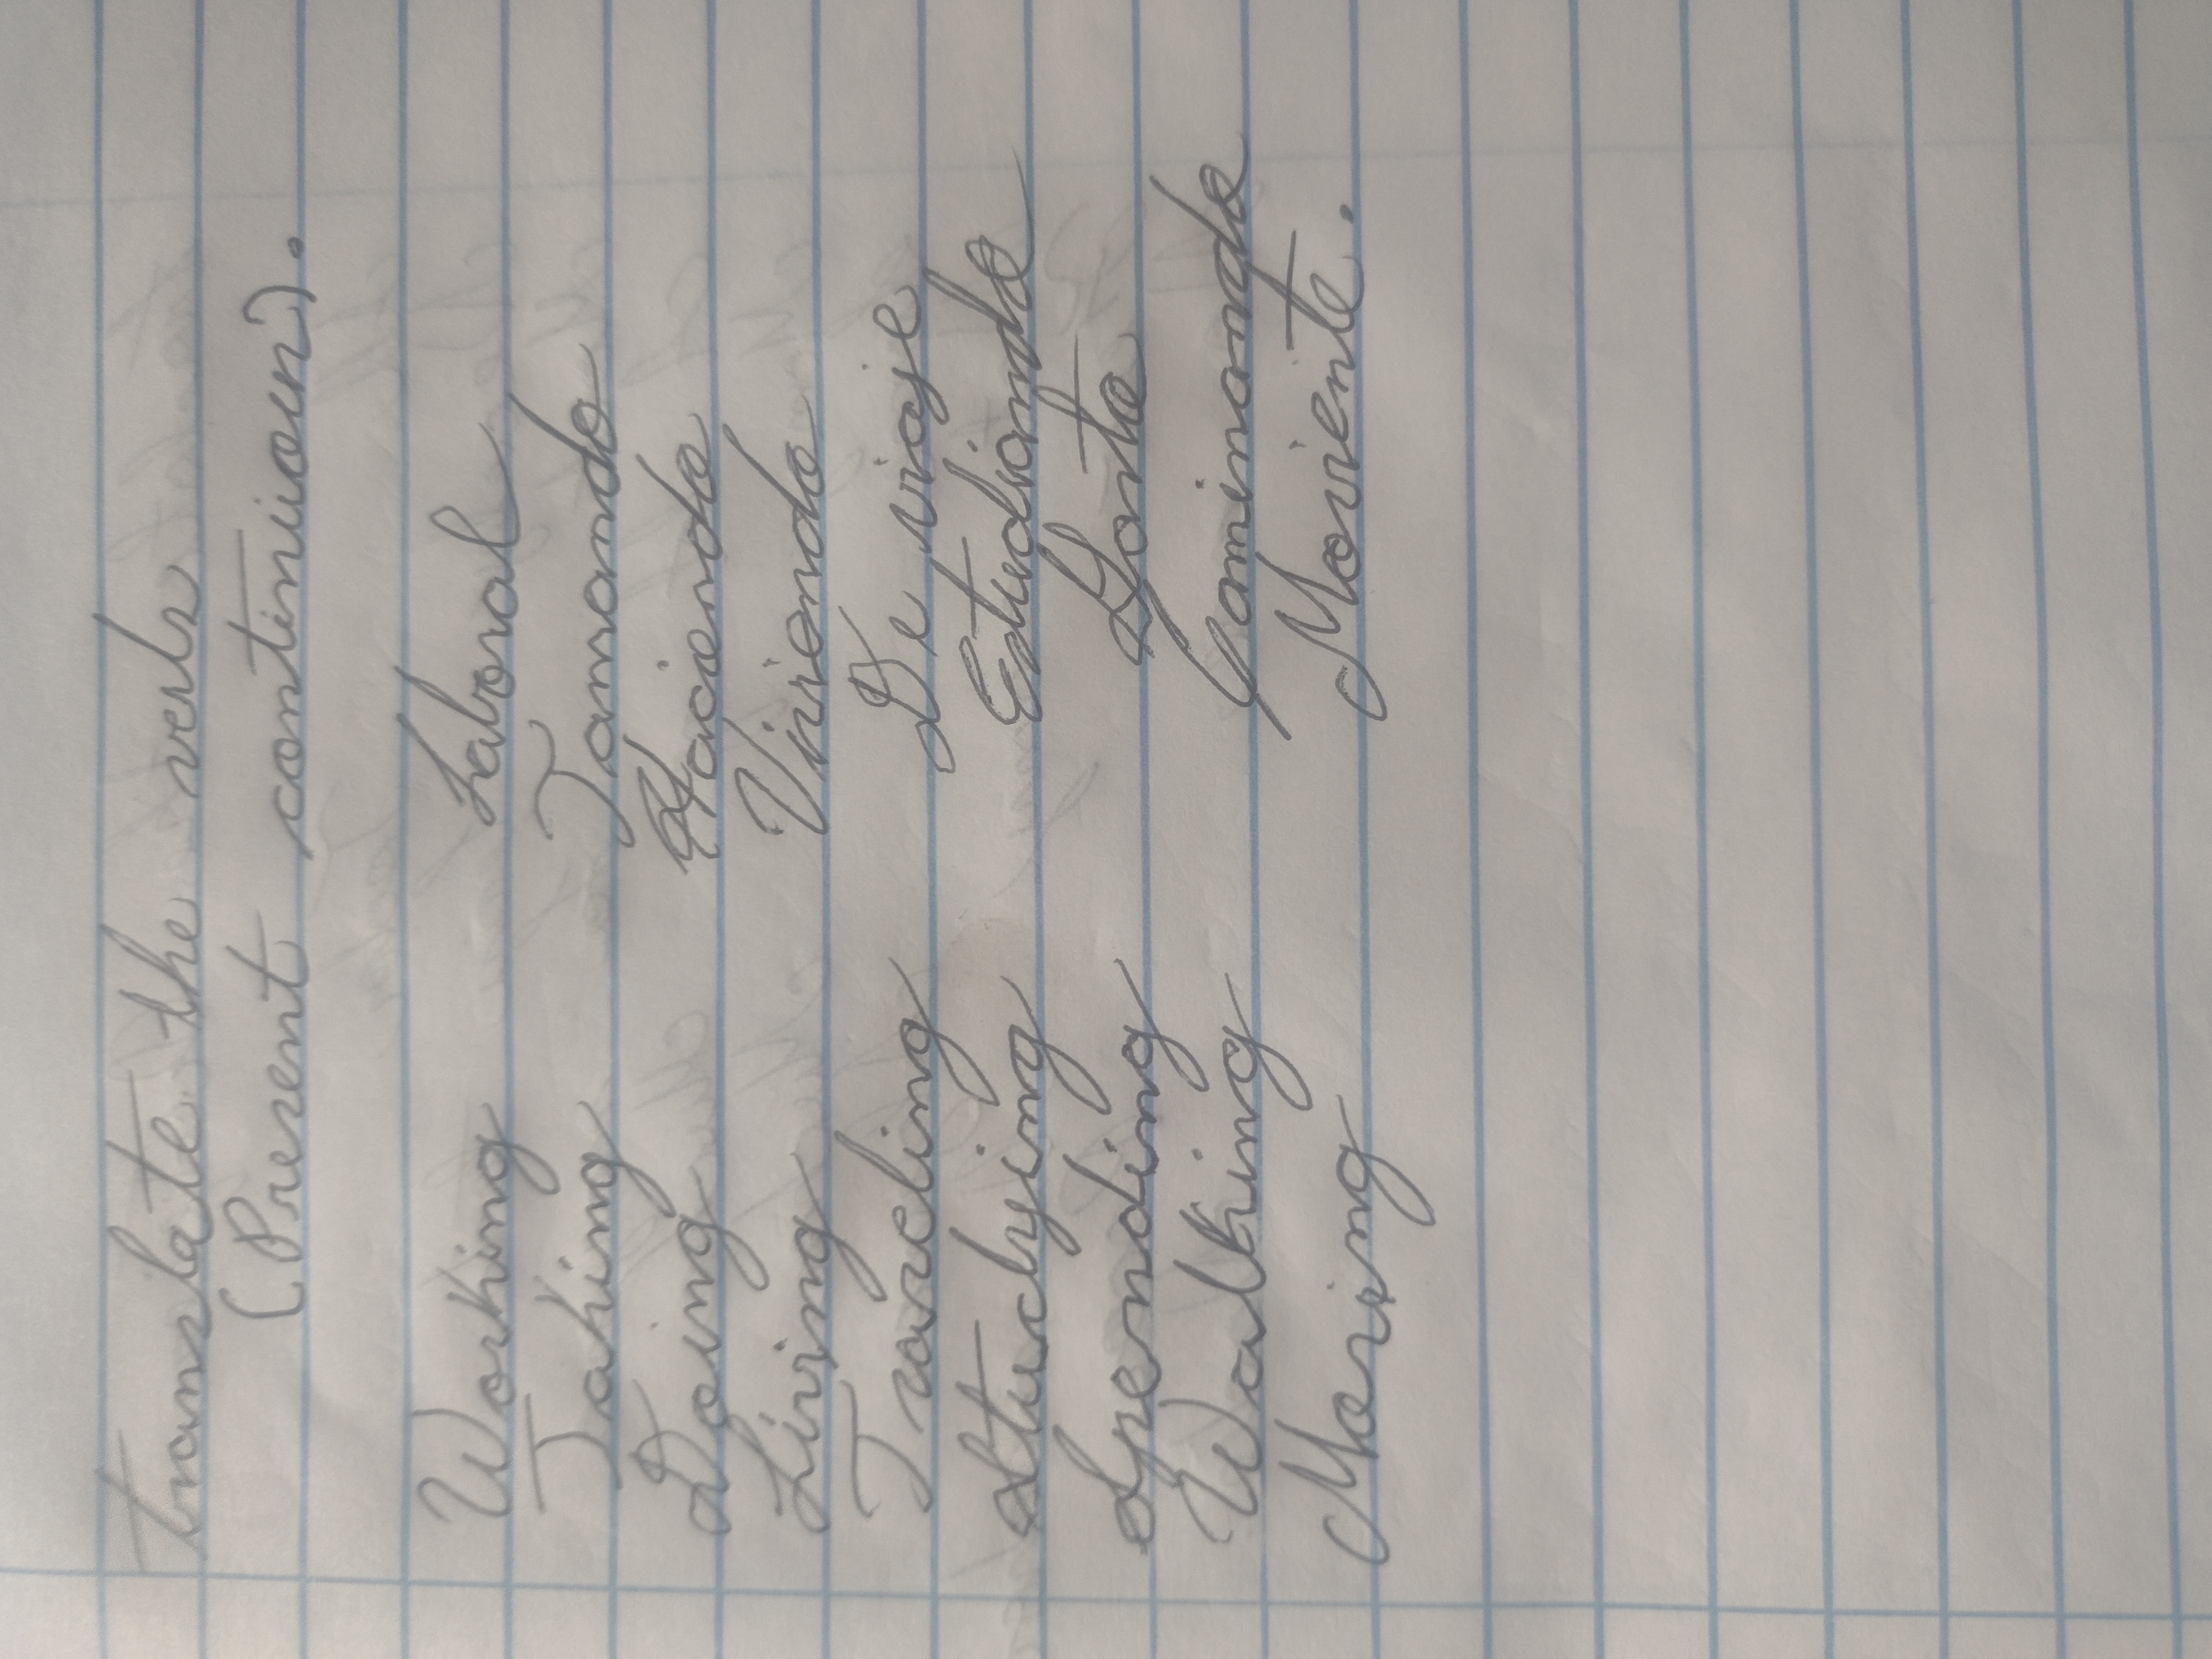 Translate the verbs
(Present continuoun).
Working Laboral
Taking Tomando
Doing Haciendo
Living Viviendo
Traveling De viaje
Studying Estudiando
Spending Gasto
Walking Caminando
Moving Moviente.